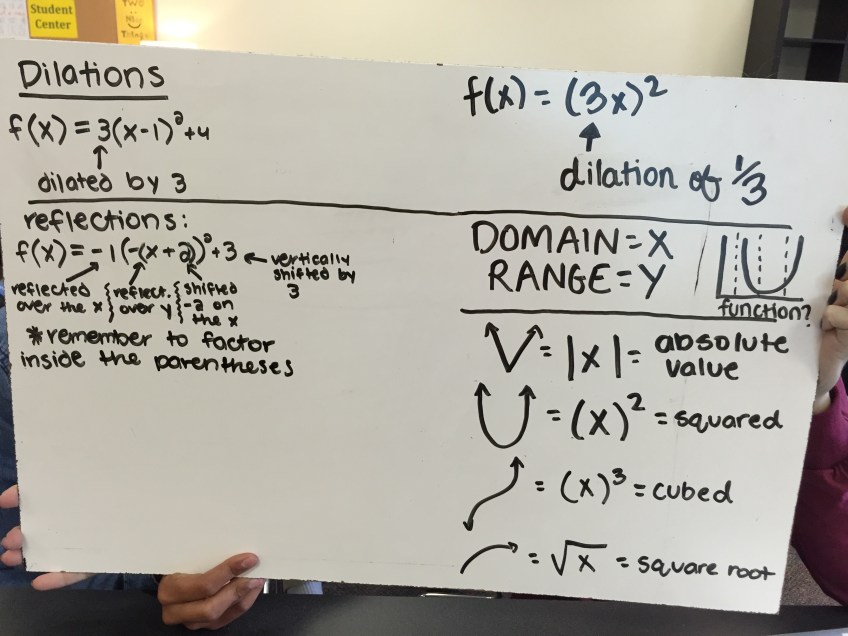 Student
Center
TWO
Dilations
f(x) = 3(x-1)²+4
↑
dilated by 3
f(x) = (3x)²
↑
dilation of 1/3
reflections:
f(x) = -1(-(x+2))²+3 ← vertically
shifted by
3
reflected
over the x
{reflect.
over y
{shifted
-2 on
the x
*remember to factor
inside the parentheses
DOMAIN=X
RANGE=Y
function?
= |x| = absolute
value
= (x)² = squared
= (x)³ = cubed
= √x = square root